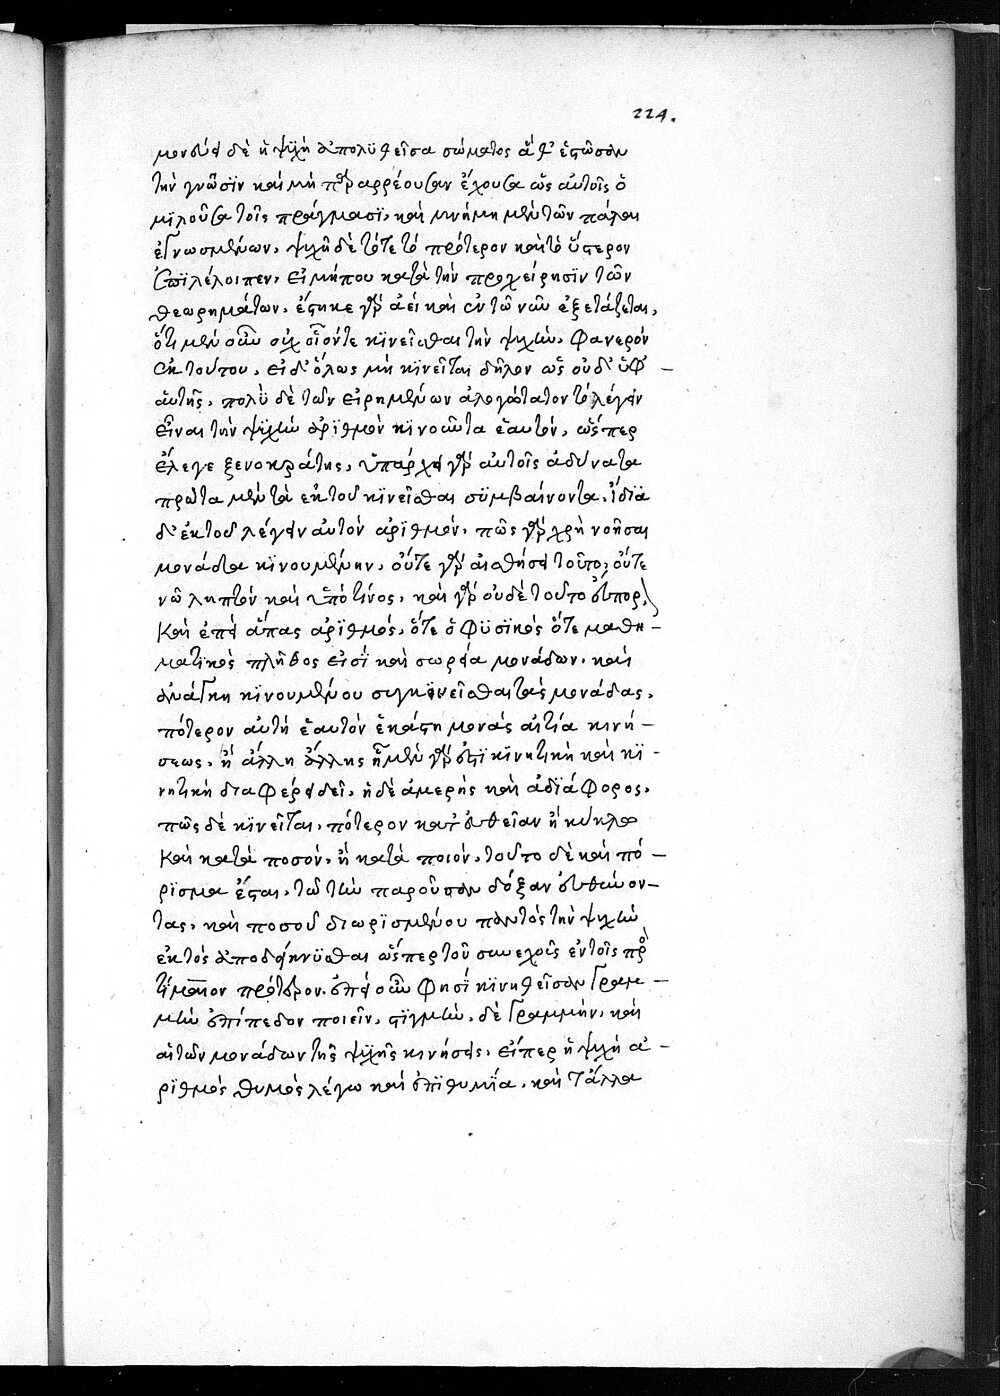 224.
δὲ ἡ ψϊχὴ ἀπολϋθεῖσα σώματος ἅθ' ἑςῶσαν
τὴν γνῶσϊν καὶ μὴ παραρρέουσαν ἔχουσα ὡς αὐτοῖς ὁ
μϊλοῦσα τοῖς πράγμασϊ, καὶ μνήμη μὲν τῶν πάλαι
ἐγνωσμένων, ψϊχῇ δὲ τότε τὸ πρότερον καὶ τὸ ὕςερον
ἐπϊλέλοιπεν, εἰ μήπου κατὰ τὴν προχείρησϊν τῶν
θεωρημάτων, ἕςηκε γὰρ ἀεὶ καὶ ἐν τῷ νῷ ἐξετάζεται,
ὅτι μὲν οὖν οὐχ οἷόντε κϊνεῖσθαι τὴν ψυχὴν, φανερόν
ἐκ τούτου, εἰ δ' ὅλως μὴ κϊνεῖται δῆλον ὡς οὐδ' ὑφ –
ἁυτῆς, πολὺ δὲ τῶν εἰρημένων ἀλογώτατον τὸ λέγειν
εἶναι τὴν ψϊχὴν ἀρϊθμὸν κϊνοῦντα ἑαυτόν, ὥσπερ
ἔλεγε ξενοκράτης, ὑπάρχει γὰρ αὐτοῖς ἀδύνατα
πρῶτα μὲν τὰ ἐκ τοῦ κϊνεῖσθαι σϋμβαίνοντα, ἰδϊα
δ' ἐκ τοῦ λέγειν αὐτὸν ἀρϊθμόν, πῶς γὰρ χρὴ νοῆσαι
μονάδα κϊνουμένην, οὔτε γὰρ αἰσθήσει τοῦτο, οὔτε
νῷ ληπτόν καὶ ὑπὸ τίνος, καὶ γὰρ οὐδὲ τοῦτο
καὶ ἐπεὶ ἅπας ἀρϊθμός, ὅτε ὁ φϋσϊκὸς ὅτε μαθη –
ματϊκὸς πλῆθος εἰσΐ καὶ σωρεία μονάδων, καὶ
ἀνάγκη κϊνουμένου συγκϊνεῖσθαι τὰς μονάδας,
πότερον αὐτὴ ἑαυτὸν ἑκάςη μονὰς αἰτία κινή –
σεως, ἢ ἄλλη ἄλλης ᾗ μὲν γὰρ ἐςϊ κϊνητικὴ καὶ κϊ –
νητϊκὴ διαφέρει δεῖ, ἡ δὲ ἀμερὴς καὶ ἀδϊάφορος,
πῶς δὲ κϊνεῖται, πότερον κατ' εὐθεῖαν ἢ κύκλω
καὶ κατὰ ποσόν, ἢ κατὰ ποιόν, τοῦτο δὲ καὶ πό –
ρϊσμα ἔςαι, τῶ τὴν παροῦσαν δόξαν εὐθύνον –
τας, καὶ ποσοῦ διωρϊσμένου παντὸς τὴν ψυχὴν
ἐκτὸς ἀποδείκνϋσθαι ὥσπερ τοῦ συνεχοῦς ἐν τοῖς πρὸς
τίμαιον πρότερον. ἐπεὶ οὖν φησΐ κϊνηθεῖσαν γραμ –
μὴν ἐπίπεδον ποιεῖν, ςϊγμὴν, δὲ γραμμήν, καὶ
αἱ τῶν μονάδων τῆς ψϊχῆς κινήσεις, εἴπερ ἡ ψϊχὴ ἀ –
ρϊθμὸς θυμὸς λέγω καὶ ἐπϊθυμΐα, καὶ τἆλλα